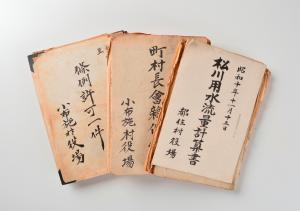 昭和十年十一月十三日
松川用水流量計算書
都住村役場
町村長會
小布施村役場
條例許可一件
小布施村役場